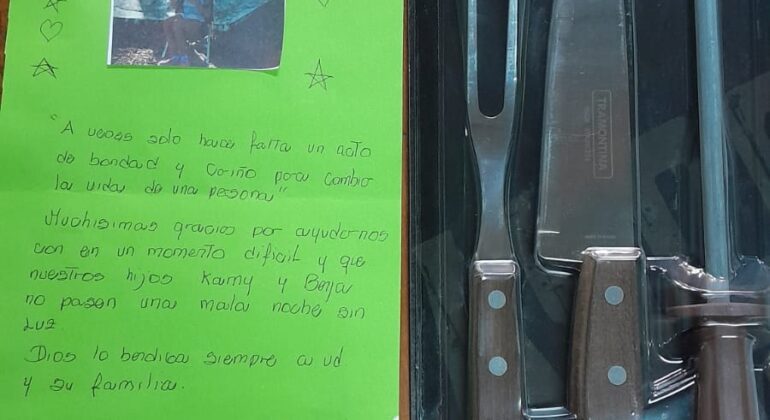 "A veces solo hace falta un acto
de bondad y cariño para cambio
la vida de una persona"
Muchisimas gracias por ayudarnos
con en un momento dificil y que
nuestros hijos Kamy y Benja
no pasen una mala noche sin
Luz
Dios lo bendiga siempre a ud
y su familia.
TRAMONTINA